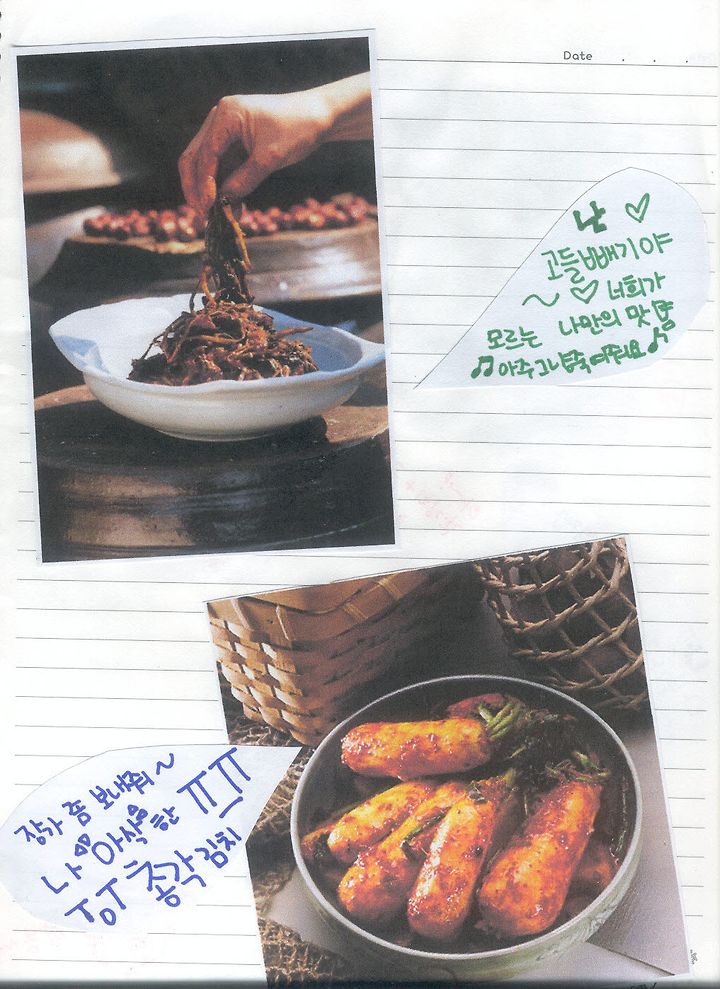 Date . . .
난 ♡
고들빼기야
~ ♡ 너희가
모르는 나만의 맛
♫아주 그냥 죽여줘요♪
장가 좀 보내줘~
나 아삭한 ㅠㅠ
ㅜㅇㅜ 총각김치